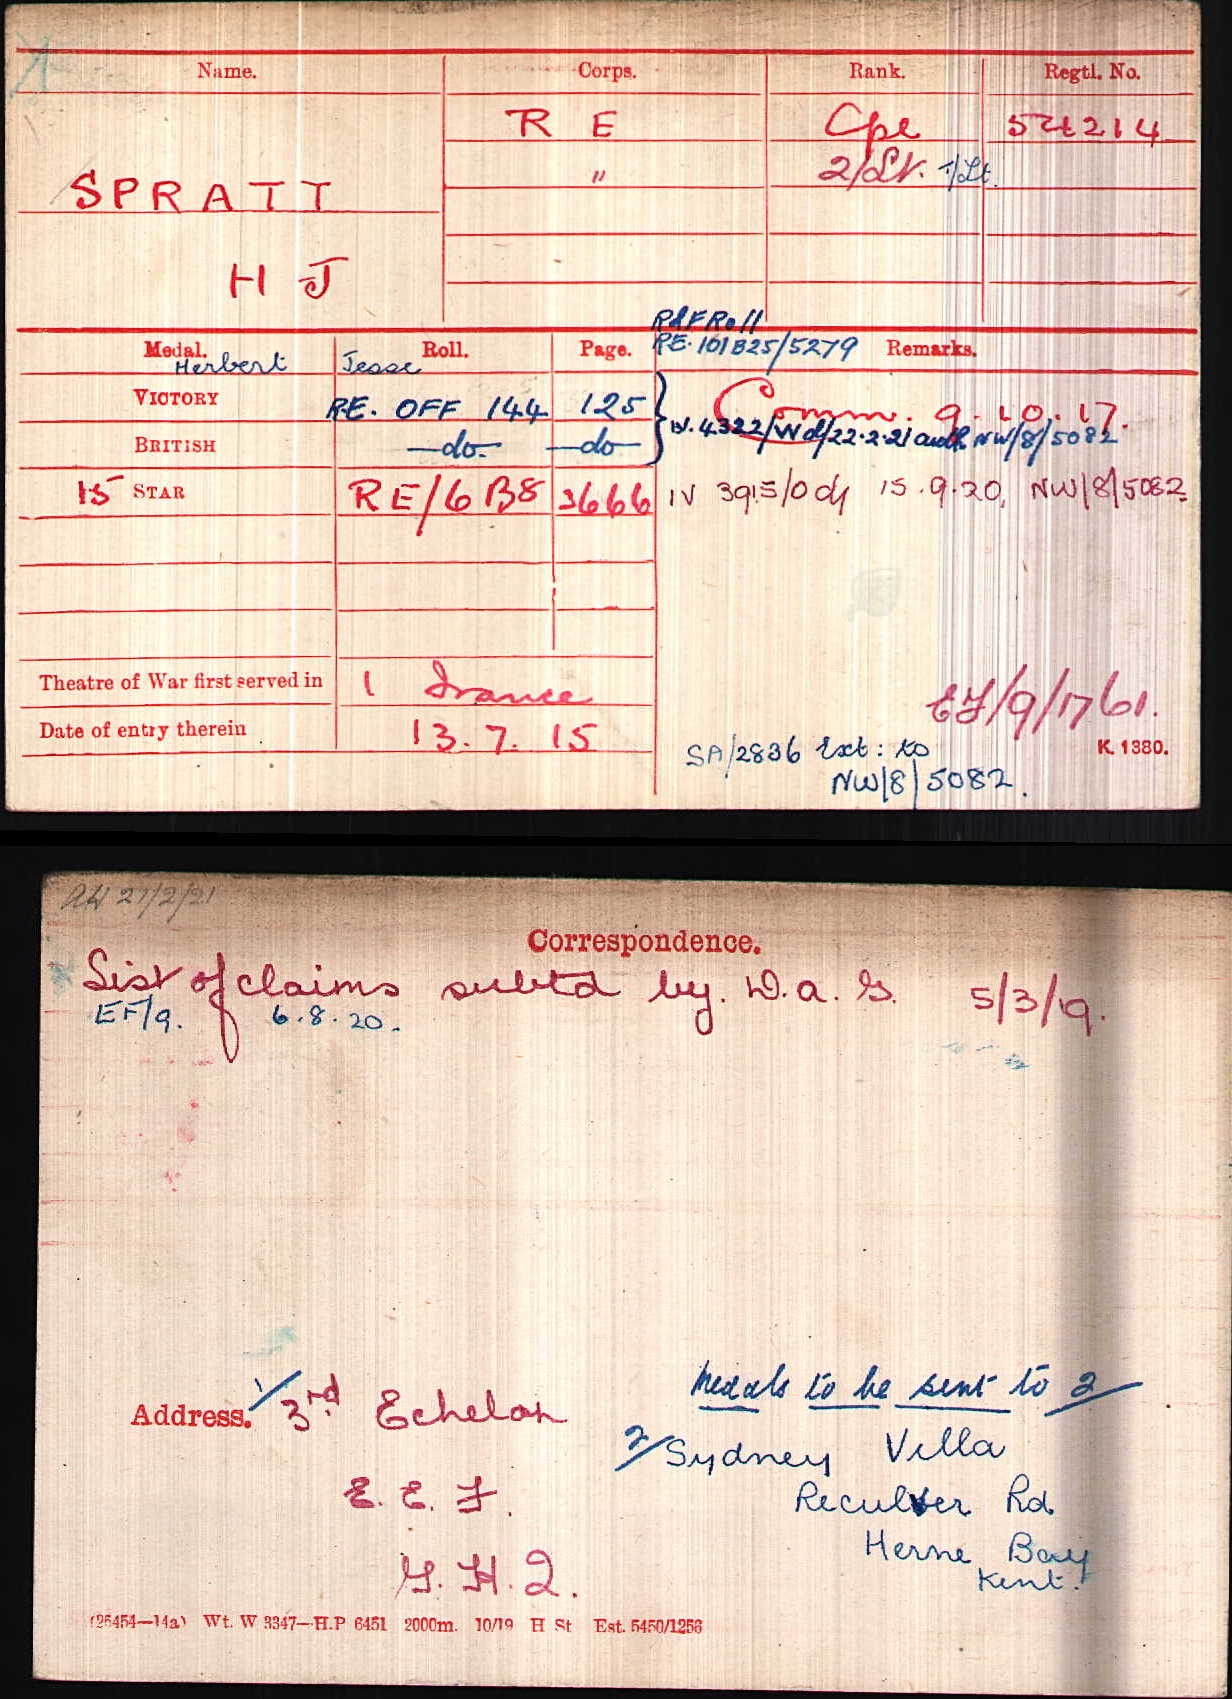 Name. Corps. Rank. Regtl. No.
R E Cpl 54214
" 2/Lt. T/Lt.
SPRATT
H J
R&F Roll
RE. 101B25/5279
Medal. Roll. Page. Remarks.
Herbert Jesse
VICTORY RE. OFF 144 125 Comm. 9.10.17.
BRITISH —do— —do— IV. 4322/Wd/22.2.21 auth NW/8/5082
15 STAR RE/6 B8 3666 IV 3915/Od 15.9.20, NW/8/5082
Theatre of War first served in 1 France
Date of entry therein 13.7.15
EF/9/1761.
K. 1380.
SA/2836 Ext: to
NW/8/5082.
AW 21/2/21
Correspondence.
List of claims subtd by. D.A.G. 5/3/19.
EF/9. 6.8.20.
Medals to be sent to 2/
Address. 1/ 3rd Echelon
2/ Sydney Villa
Reculver Rd
E. E. F.
Herne Bay
Kent.
G. H. Q.
(26454—14a) Wt. W 3347—H.P 6451 2000m. 10/19 H St Est. 5450/1256